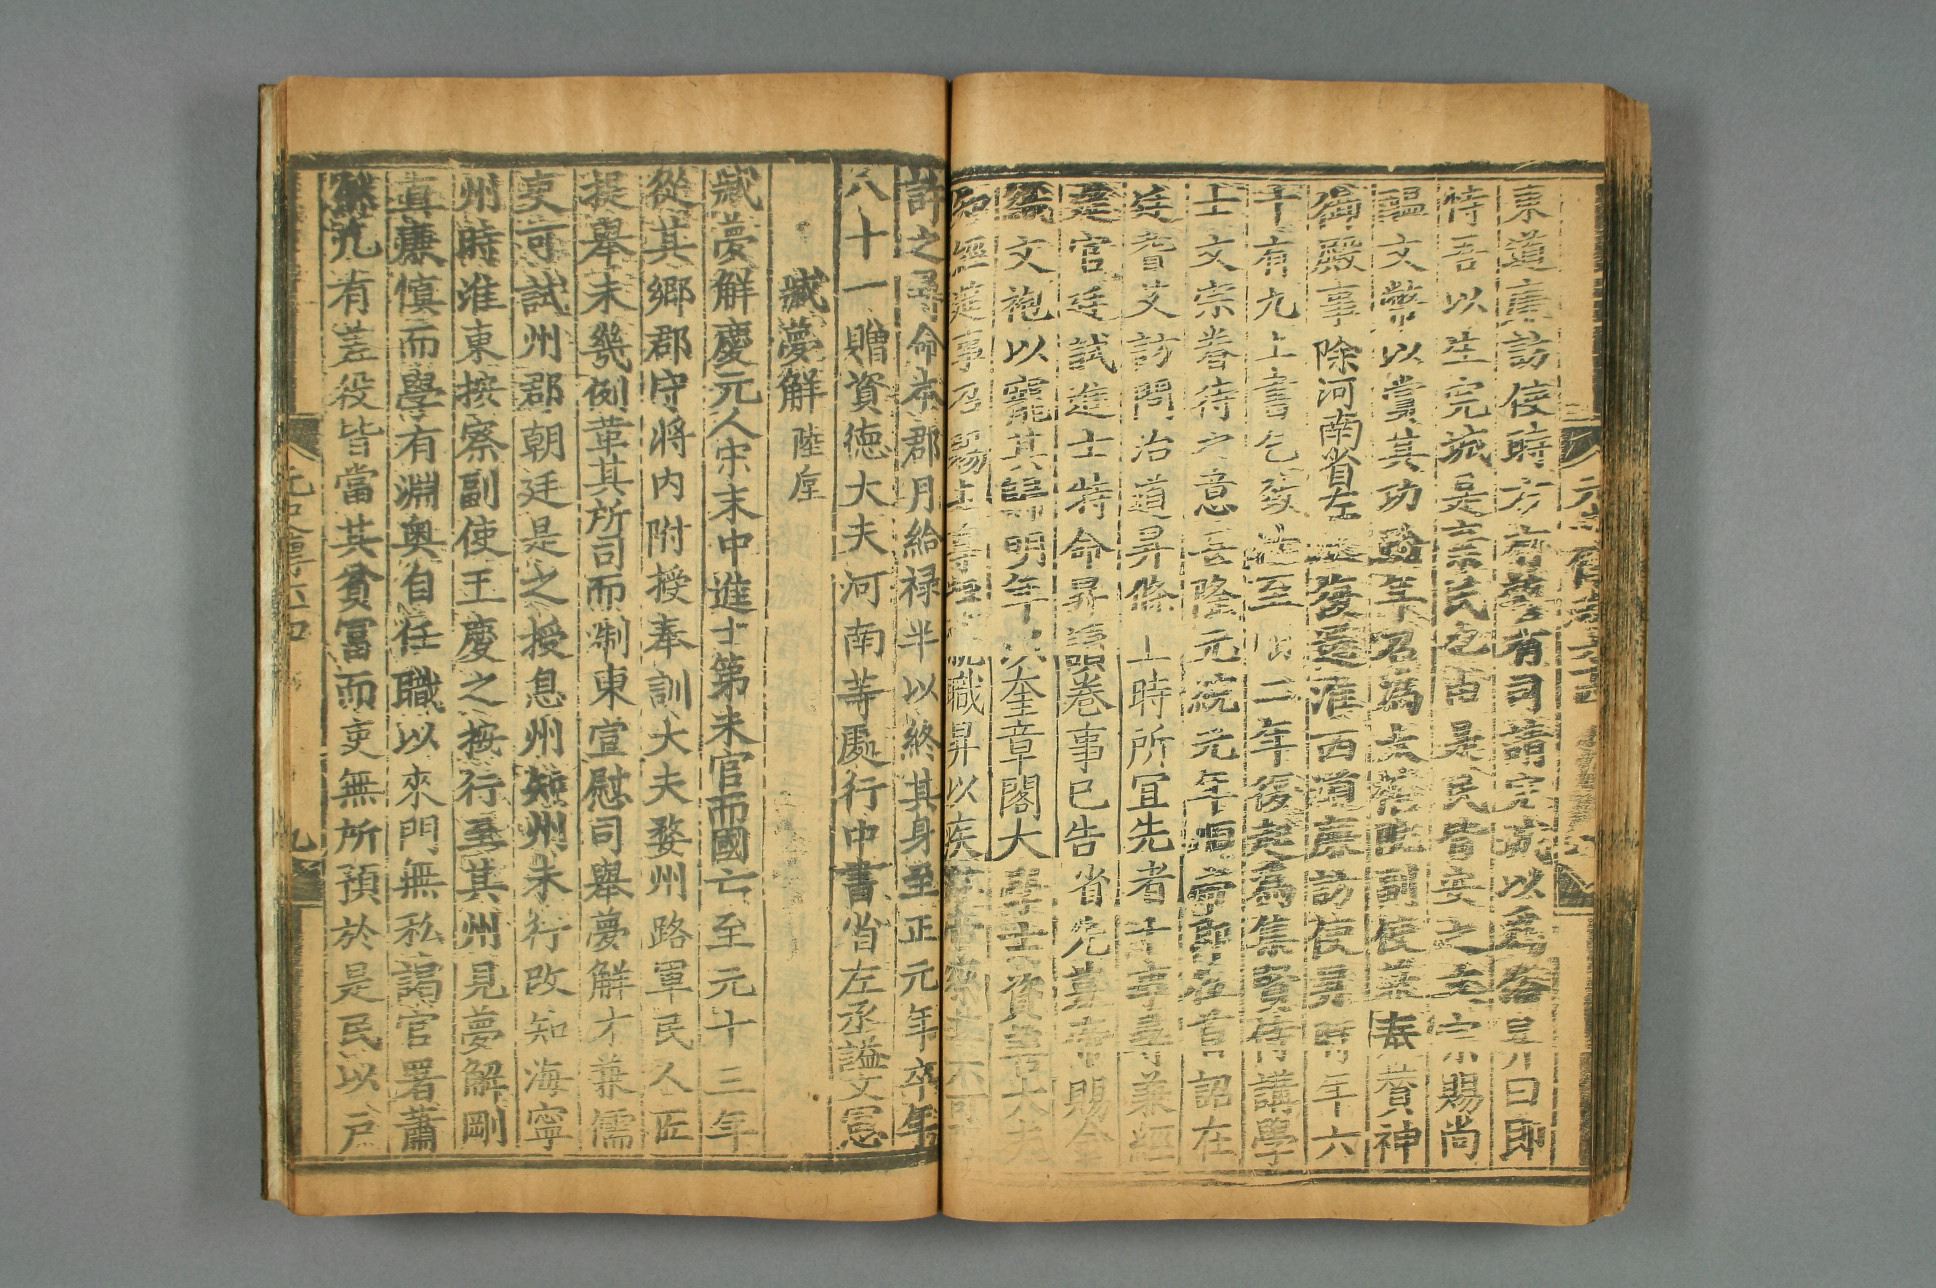 東道廉訪使時方旱有司請完城以爲備昇曰即
恃吾以生完城是棄民也由是民皆安之文宗賜尚
醞文幣以賞其功踰年召爲太禧院副使兼奉贊神
御殿事除河南省左丞復遷淮西道廉訪使昇時年六
十有九上書乞致仕至順二年復起爲集賢侍講學
士文宗眷待之意甚隆元統元年順帝即位首詔在
廷耆艾訪問治道昇條上時所宜先者十事尋兼經
筵官廷試進士特命昇讀卷事已告省先墓帝賜金
織文袍以寵其歸明年以奎章閣大學士資善大夫
知經筵事召賜上尊 職昇以疾辭帝察其不可
許之尋命本郡月給祿半以終其身至正元年卒年
八十一贈資德大夫河南等處行中書省左丞謚文憲
臧夢解 陸垕
臧夢解慶元人宋末中進士第未官而國亡至元十三年
從其鄉郡守將內附授奉訓大夫婺州路軍民人匠
提舉未幾例革其所司而浙東宣慰司舉夢解才兼儒
吏可試州郡朝廷是之授息州知州未行改知海寧
州時淮東按察副使王慶之按行至其州見夢解剛
直廉慎而學有淵奧自任職以來門無私謁官署蕭
然凡有差役皆當其貧冨而吏無所預於是民以戶
元史傳六十四
九